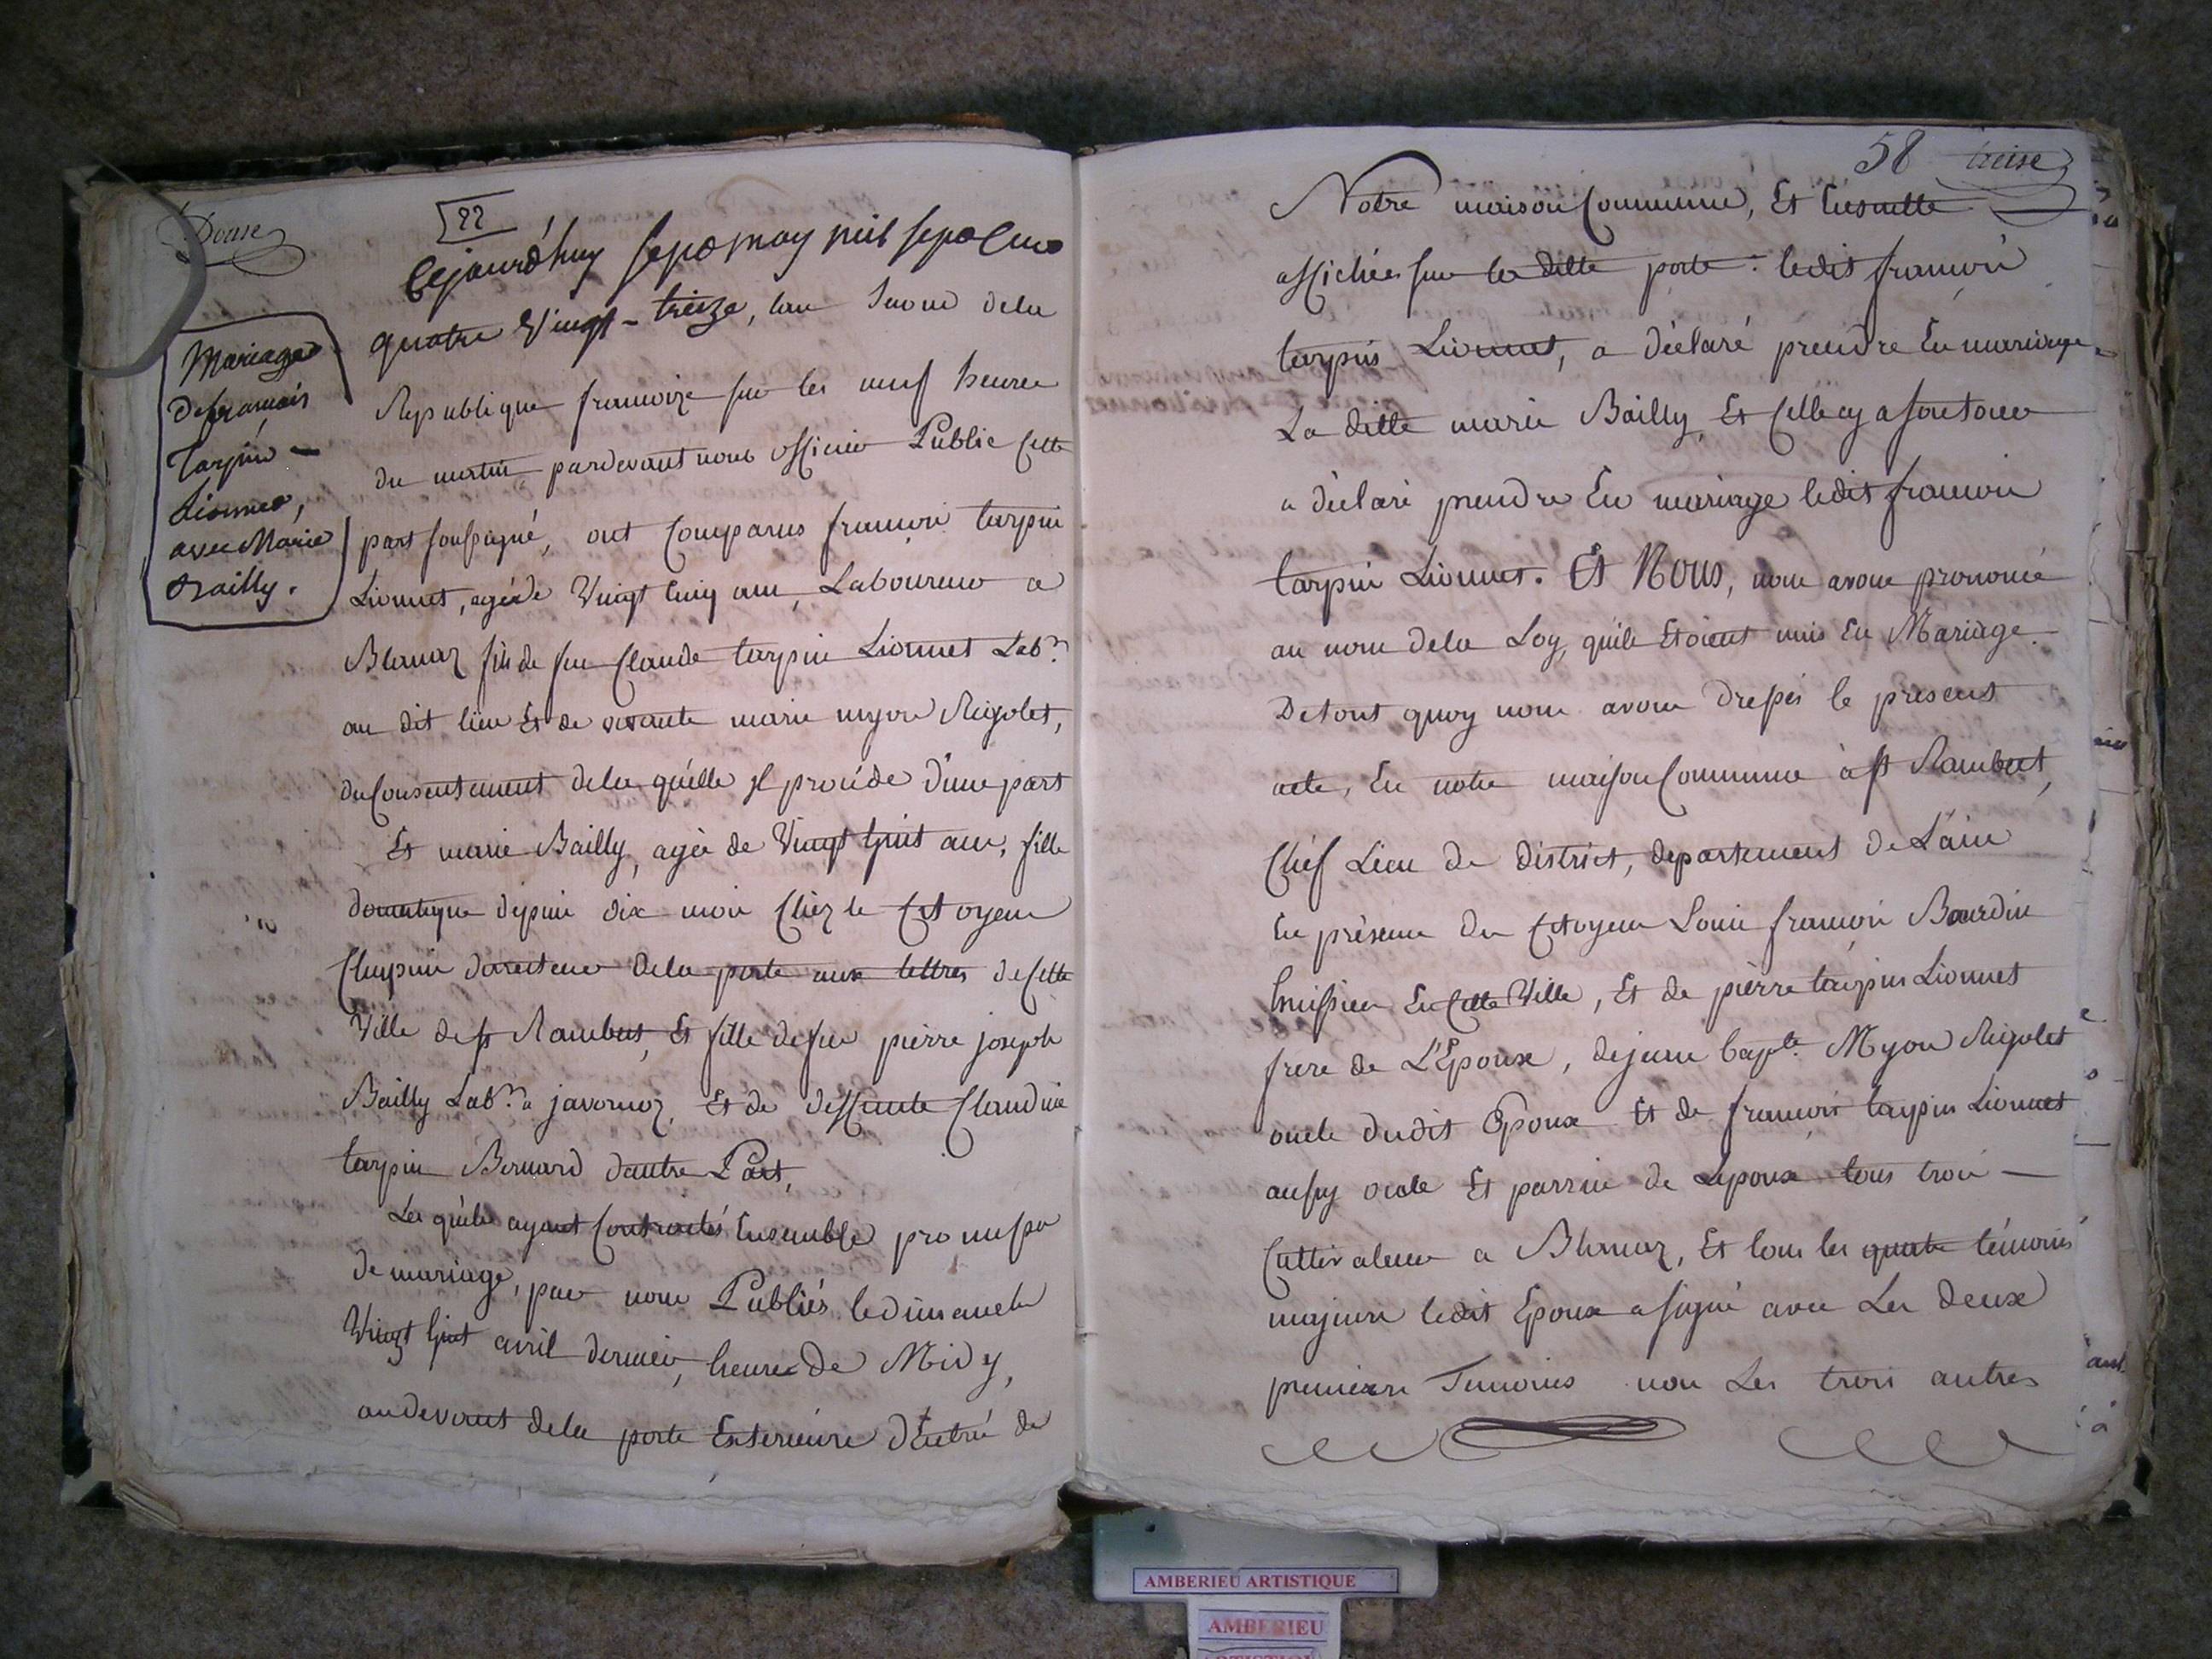 Douse
22
Mariage
de francois
Tarpin
Lionnet,
avec Marie
Bailly.
Cejourd'huy sept may mil sept cens
quatre Vingt-treize, lan second dela
Republique francoize sur les neuf heures
du matin pardevant nous officier Public cette
part soussigné, ont Comparus francois tarpin
Lionnet, agé de Vingt cinq ans, Laboureur a
Blanaz fils de feu Claude tarpin Lionnet Labr.
au dit lieu Et de vivante marie myon Rigolet,
du Consentement dela quélle il procéde d'une part
Et marie Bailly, agée de Vingt huit ans, fille
domestique depuis dix mois Chez le Citoyen
Chapuis directeur dela poste aux lettres de cette
Ville de st Rambert, Et fille de feu pierre joseph
Bailly Labr. a javornoz, Et de deffunte Claudine
tarpin Bernard dautre Part,
Les quéls ayant Contractés Ensemble promesse
de mariage, par nous Publiés le dimanche
Vingt huit avril dernier, heure de Midy,
au devant dela porte Exterieure d'Entrée de
58 treise
Notre maison Commune, Et Ensuitte
affichées sur la ditte porte : ledit francois
tarpin Lionnet, a déclaré prendre En mariage
La ditte marie Bailly, Et celle cy a son tour
a déclaré prendre En mariage ledit francois
tarpin Lionnet. Et Nous, nous avons prononcé
au nom dela Loy, quils Etoient unis En Mariage.
De tout quoy nous avons dressés le present
acte, En notre maison Commune à st Rambert,
Chéf Lieu de district, departement de L'ain
En présence du Citoyen Louis francois Bourdin
huissier En cette Ville, Et de pierre tarpin Lionnet
frere de L'Epoux, de jean bapte. Myon Rigolet
oncle dudit Epoux Et de francois tarpin Lionnet
aussy oncle Et parrin de Lepoux tous trois
Cultivateurs a Blanaz, Et tous les quatre témoins
majeurs ledit Epoux a signé avec Les deux
premiers Temoins non Les trois autres
AMBERIEU ARTISTIQUE
AMBERIEU
ARTISTIQUE